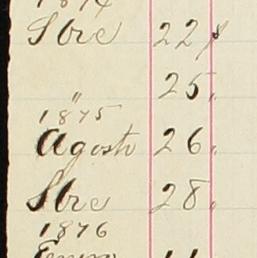 1874
Sbre 22
" 25.
1875
Agosto 26.
Sbre 28.
1876
Enero